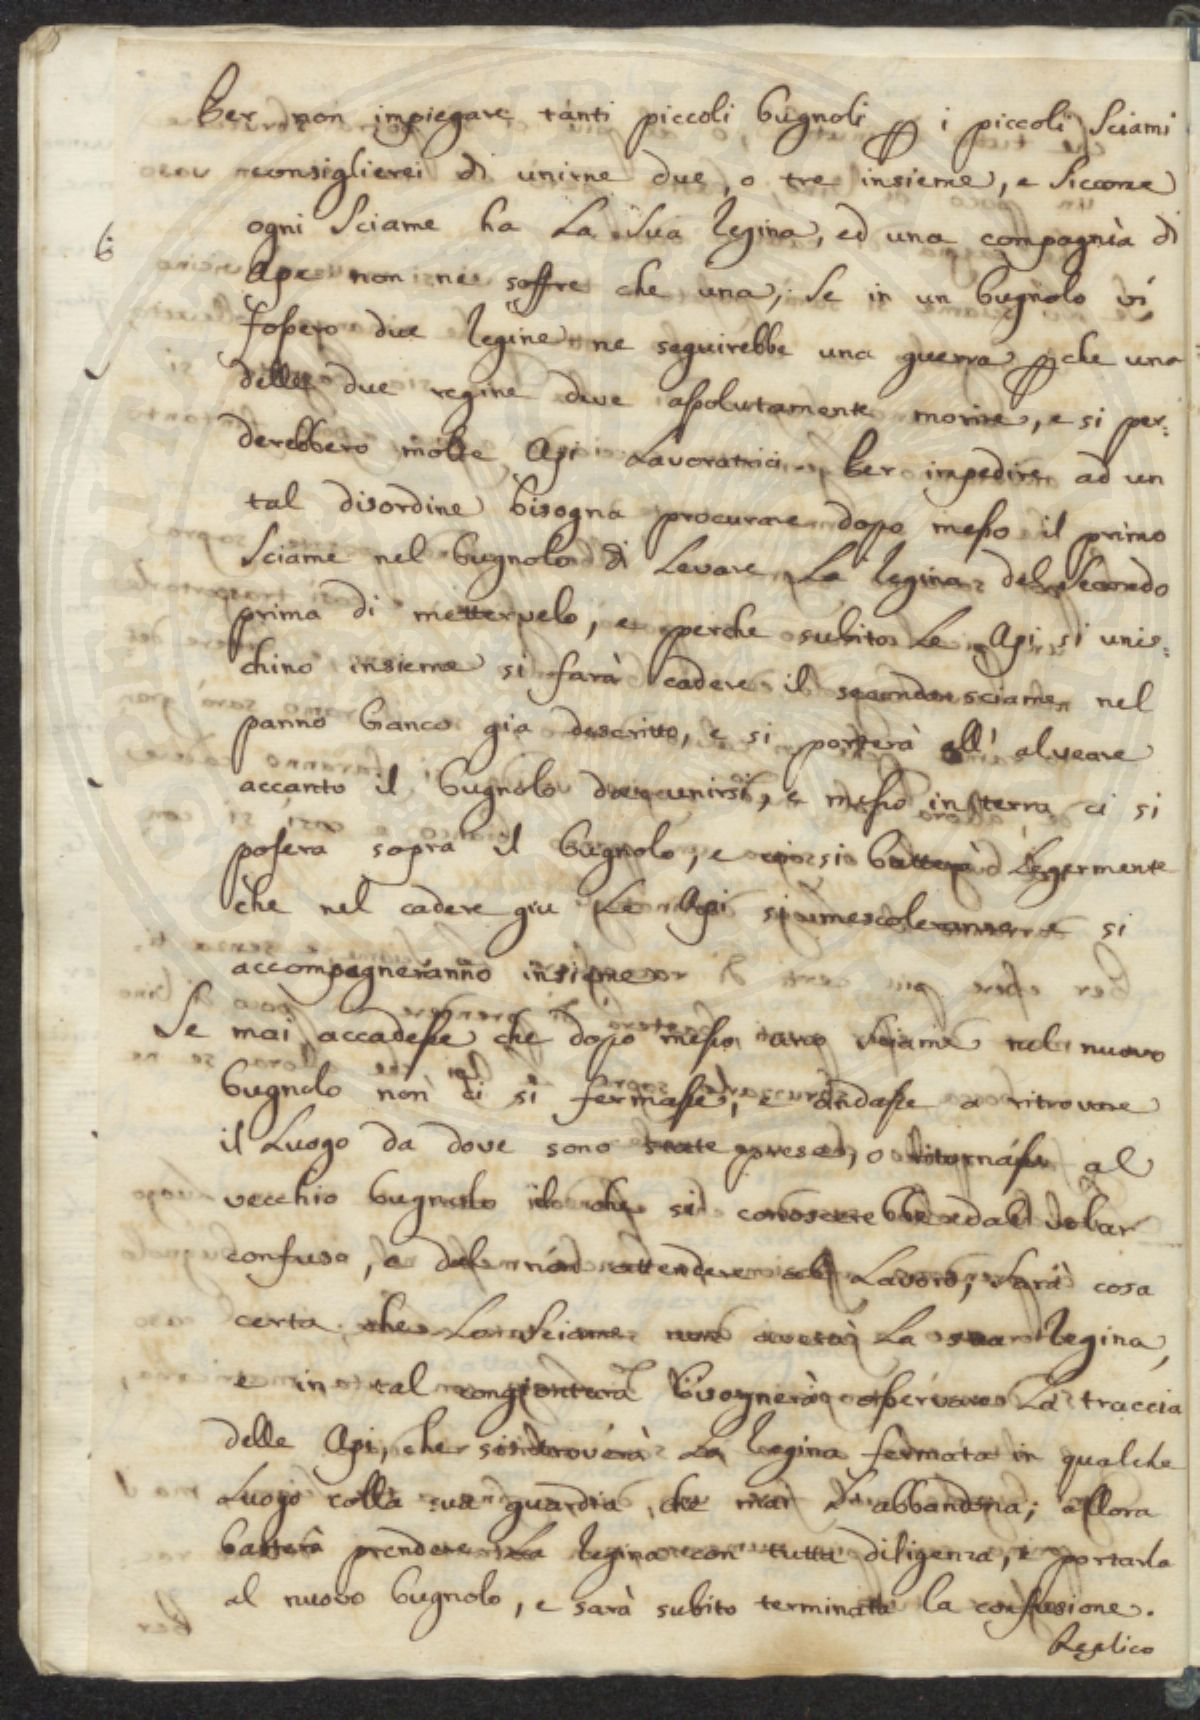 Per non impiegare tanti piccoli bugnoli ꝑ i piccoli Sciami
consiglierei di unirne due, o tre insieme, e Siccome
ogni Sciame ha La Sua Regina, ed una compagnia di
Ape non ne soffre che una, Se in un bugnolo vi
fossero due Regine ne seguirebbe una guerra ꝑche una
delle due regine deve assolutamente morire, e si per:
derebbero molte Api Lavoratrici. Per impedire ad un
tal disordine bisogna procurare dopo messo il primo
Sciame nel bugnolo di Levare La Regina del Secondo
prima di mettervelo, e perche subito Le Api si unis:
chino insieme si farà cadere il secondo sciame nel
panno bianco gia descritto, e si porterà all' alveare
accanto il bugnolo da unirsi, e messo in terra ci si
poserà sopra il bugnolo, e si batterà Legermente
che nel cadere giu Le Api si mescoleranno e si
accompagneranno insieme
Se mai accadesse che dopo messo uno Sciame nel nuovo
bugnolo non ci si fermasse, e andasse a ritrovare
il Luogo da dove sono state prese, o ritornasse al
vecchio bugnolo il che si conoscerebbe dal volar
confuso, e dal non attendere al Lavoro, Sarà cosa
certa che Lo Sciame non averà La sua Regina,
e in tal congiontura bisognerà osservare La traccia
delle Api, che si troverà La Regina fermata in qualche
Luogo colla sua guardia che mai L'abbandona; allora
basterà prendere La Regina con tutta diligenza, e portarla
al nuovo bugnolo, e sarà subito terminata la confusione.
Replico